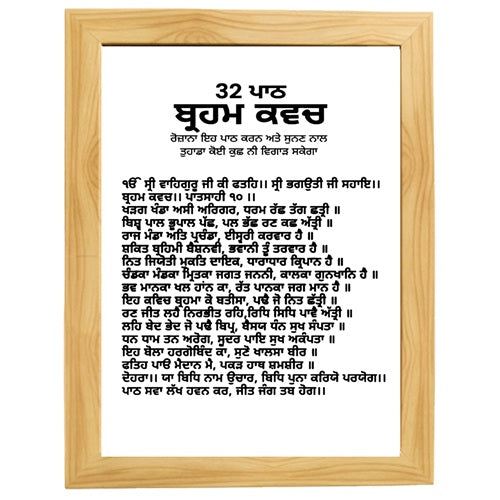 32 ਪਾਠ
ਬ੍ਰਹਮ ਕਵਚ
ਰੋਜ਼ਾਨਾ ਇਹ ਪਾਠ ਕਰਨ ਅਤੇ ਸੁਨਣ ਨਾਲ
ਤੁਹਾਡਾ ਕੋਈ ਕੁਛ ਨੀ ਵਿਗਾੜ ਸਕੇਗਾ
ੴ ਸ੍ਰੀ ਵਾਹਿਗੁਰੂ ਜੀ ਕੀ ਫਤਹਿ।। ਸ੍ਰੀ ਭਗਉਤੀ ਜੀ ਸਹਾਇ।।
ਬ੍ਰਹਮ ਕਵਚ।। ਪਾਤਸਾਹੀ ੧੦ ।।
ਖੜਗ ਖੰਡਾ ਅਸੀ ਅਰਿਗਰ, ਧਰਮ ਰੱਛ ਤੱਗ ਛਤ੍ਰੀ ॥
ਬਿਸ੍ਵ ਪਾਲ ਭੂਪਾਲ ਪੱਛ, ਪਲ ਭੱਛ ਰਣ ਕਛ ਅੱਤ੍ਰੀ ॥
ਰਾਜ ਮੰਡਾ ਅਤਿ ਪ੍ਰਚੰਡਾ, ਈਸੂਰੀ ਕਰਵਾਰ ਹੈ ॥
ਸ਼ਕਿਤ ਬ੍ਰਹਿਮੀ ਬੈਸ਼ਨਵੀ, ਭਵਾਨੀ ਤੂੰ ਤਰਵਾਰ ਹੈ ॥
ਨਿਤ ਜਿਯੋਤੀ ਮੁਕਤਿ ਦਾਇਕ, ਧਾਰਾਧਾਰ ਕ੍ਰਿਪਾਨ ਹੈ ॥
ਚੰਡਕਾ ਮੰਡਕਾ ਮ੍ਰਿਤਕਾ ਜਗਤ ਜਨਨੀ, ਕਾਲਕਾ ਗੁਨਖਾਨਿ ਹੈ ॥
ਭਵ ਮਾਨਕਾ ਖਲ ਹਾਂਨ ਕਾ, ਰੱਤ ਪਾਨਕਾ ਜਗ ਮਾਨ ਹੈ ॥
ਇਹ ਕਵਿਚ ਬ੍ਰਹਮਾ ਕੋ ਬਤੀਸਾ, ਪਢੈ ਜੋ ਨਿਤ ਛੱਤ੍ਰੀ ॥
ਰਣ ਜੀਤ ਲਹੈ ਨਿਰਭੀਤ ਰਹਿ,ਰਿਧਿ ਸਿਧਿ ਪਾਵੈ ਅੱਤ੍ਰੀ ॥
ਲਹਿ ਬੇਦ ਭੇਦ ਜੋ ਪਢੈ ਬਿਪ੍ਰ, ਬੈਸਯ ਧੰਨ ਸੁਖ ਸੰਪਤਾ ॥
ਧਨ ਧਾਮ ਤਨ ਅਰੋਗ, ਸੂਦਰ ਪਾਇ ਸੁਖ ਅਕੰਪਤਾ ॥
ਇਹ ਬੋਲਾ ਹਰਗੋਬਿੰਦ ਕਾ, ਸੁਣੋ ਖਾਲਸਾ ਬੀਰ ॥
ਫਤਿਹ ਪਾਓ ਮੈਦਾਨ ਮੈ, ਪਕੜ ਹਾਥ ਸ਼ਮਸ਼ੀਰ ॥
ਦੋਹਰਾ।। ਯਾ ਬਿਧਿ ਨਾਮ ਉਚਾਰ, ਬਿਧਿ ਪੁਨਾ ਕਰਿਯੋ ਪਰਯੋਗ।।
ਪਾਠ ਸਵਾ ਲੱਖ ਹਵਨ ਕਰ, ਜੀਤ ਜੰਗ ਤਬ ਹੋਗ।।